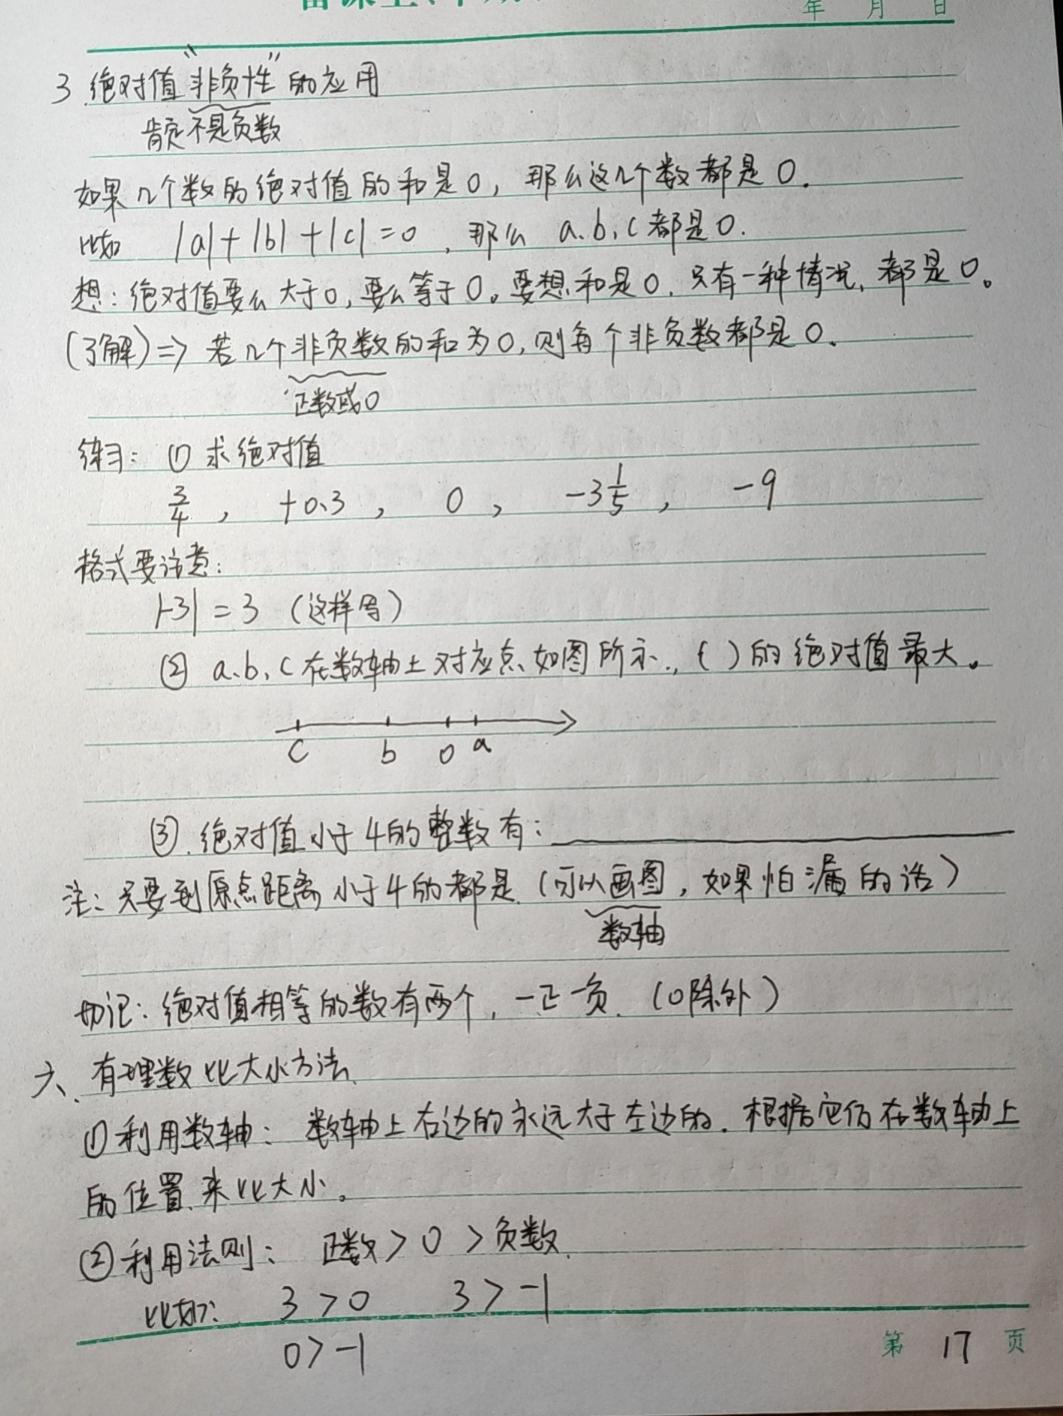 年 月 日
3.绝对值“非负性”的应用
肯定不是负数
如果几个数的绝对值的和是0，那么这几个数都是0.
比如 |a|+|b|+|c|=0，那么 a、b、c都是0.
想：绝对值要么大于0，要么等于0。要想和是0，只有一种情况，都是0。
(了解)⇒ 若几个非负数的和为0，则每个非负数都是0.
正数或0
练习：① 求绝对值
3/4， +0.3， 0， -3 1/5， -9
格式要注意：
|-3|=3（这样写）
② a、b、c在数轴上对应点如图所示，( )的绝对值最大。
c b 0 a
③.绝对值小于4的整数有：
注：只要到原点距离小于4的都是（可以画图，如果怕漏的话）
数轴
切记：绝对值相等的数有两个，一正一负.（0除外）
六、有理数比大小方法.
①利用数轴：数轴上右边的永远大于左边的. 根据它们在数轴上
的位置来比大小。
②利用法则： 正数>0>负数.
比如： 3>0 3>-1
0>-1
第 17 页